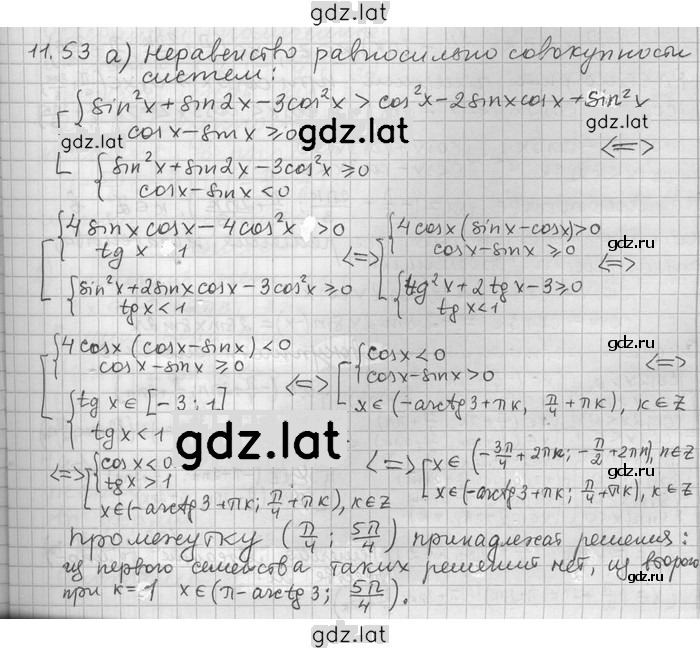 gdz.lat
11.53 а) Неравенство равносильно совокупности
систем:
[ { sin²x + sin2x − 3cos²x > cos²x − 2sinxcosx + sin²x
cosx − sinx ≥ 0
gdz.lat
gdz.lat
<=>
{ sin²x + sin2x − 3cos²x ≥ 0
cosx − sinx < 0
gdz.lat
[ { 4sinxcosx − 4cos²x > 0
tgx 1
{ sin²x + 2sinxcosx − 3cos²x ≥ 0
tgx < 1
<=> [ { 4cosx(sinx − cosx) > 0
cosx − sinx ≥ 0
gdz.ru
{ tg²x + 2tgx − 3 ≥ 0
tgx < 1
<=>
[ { 4cosx(cosx − sinx) < 0
cosx − sinx ≥ 0
{ tgx ∈ [−3; 1]
tgx < 1
<=> [ { cosx < 0
cosx − sinx > 0
x ∈ (−arctg3 + πк, π/4 + πк), к ∈ Z
<=>
gdz.ru
gdz.lat
<=> [ { cosx < 0
tgx > 1
x ∈ (−arctg3 + πк; π/4 + πк), к ∈ Z
<=> [ x ∈ (−3π/4 + 2πк; −π/2 + 2πn), n ∈ Z
x ∈ (−arctg3 + πк; π/4 + πк), к ∈ Z
gdz.ru
промежутку (π/4; 5π/4) принадлежат решения:
из первого семейства таких решений нет, из второго
при к = 1 x ∈ (π − arctg3; 5π/4).
gdz.lat
gdz.ru
gdz.lat